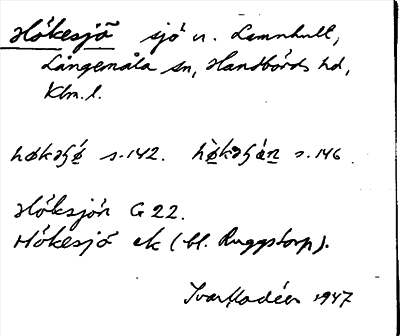 Hökesjö sjö v. Lamnhult,
Långemåla sn, Handbörds hd,
Klm.l.
s.142. s.146.
Höksjön G 22.
Hökesjö ek (bl. Ruggstorp).
Ivar Modéer 1947